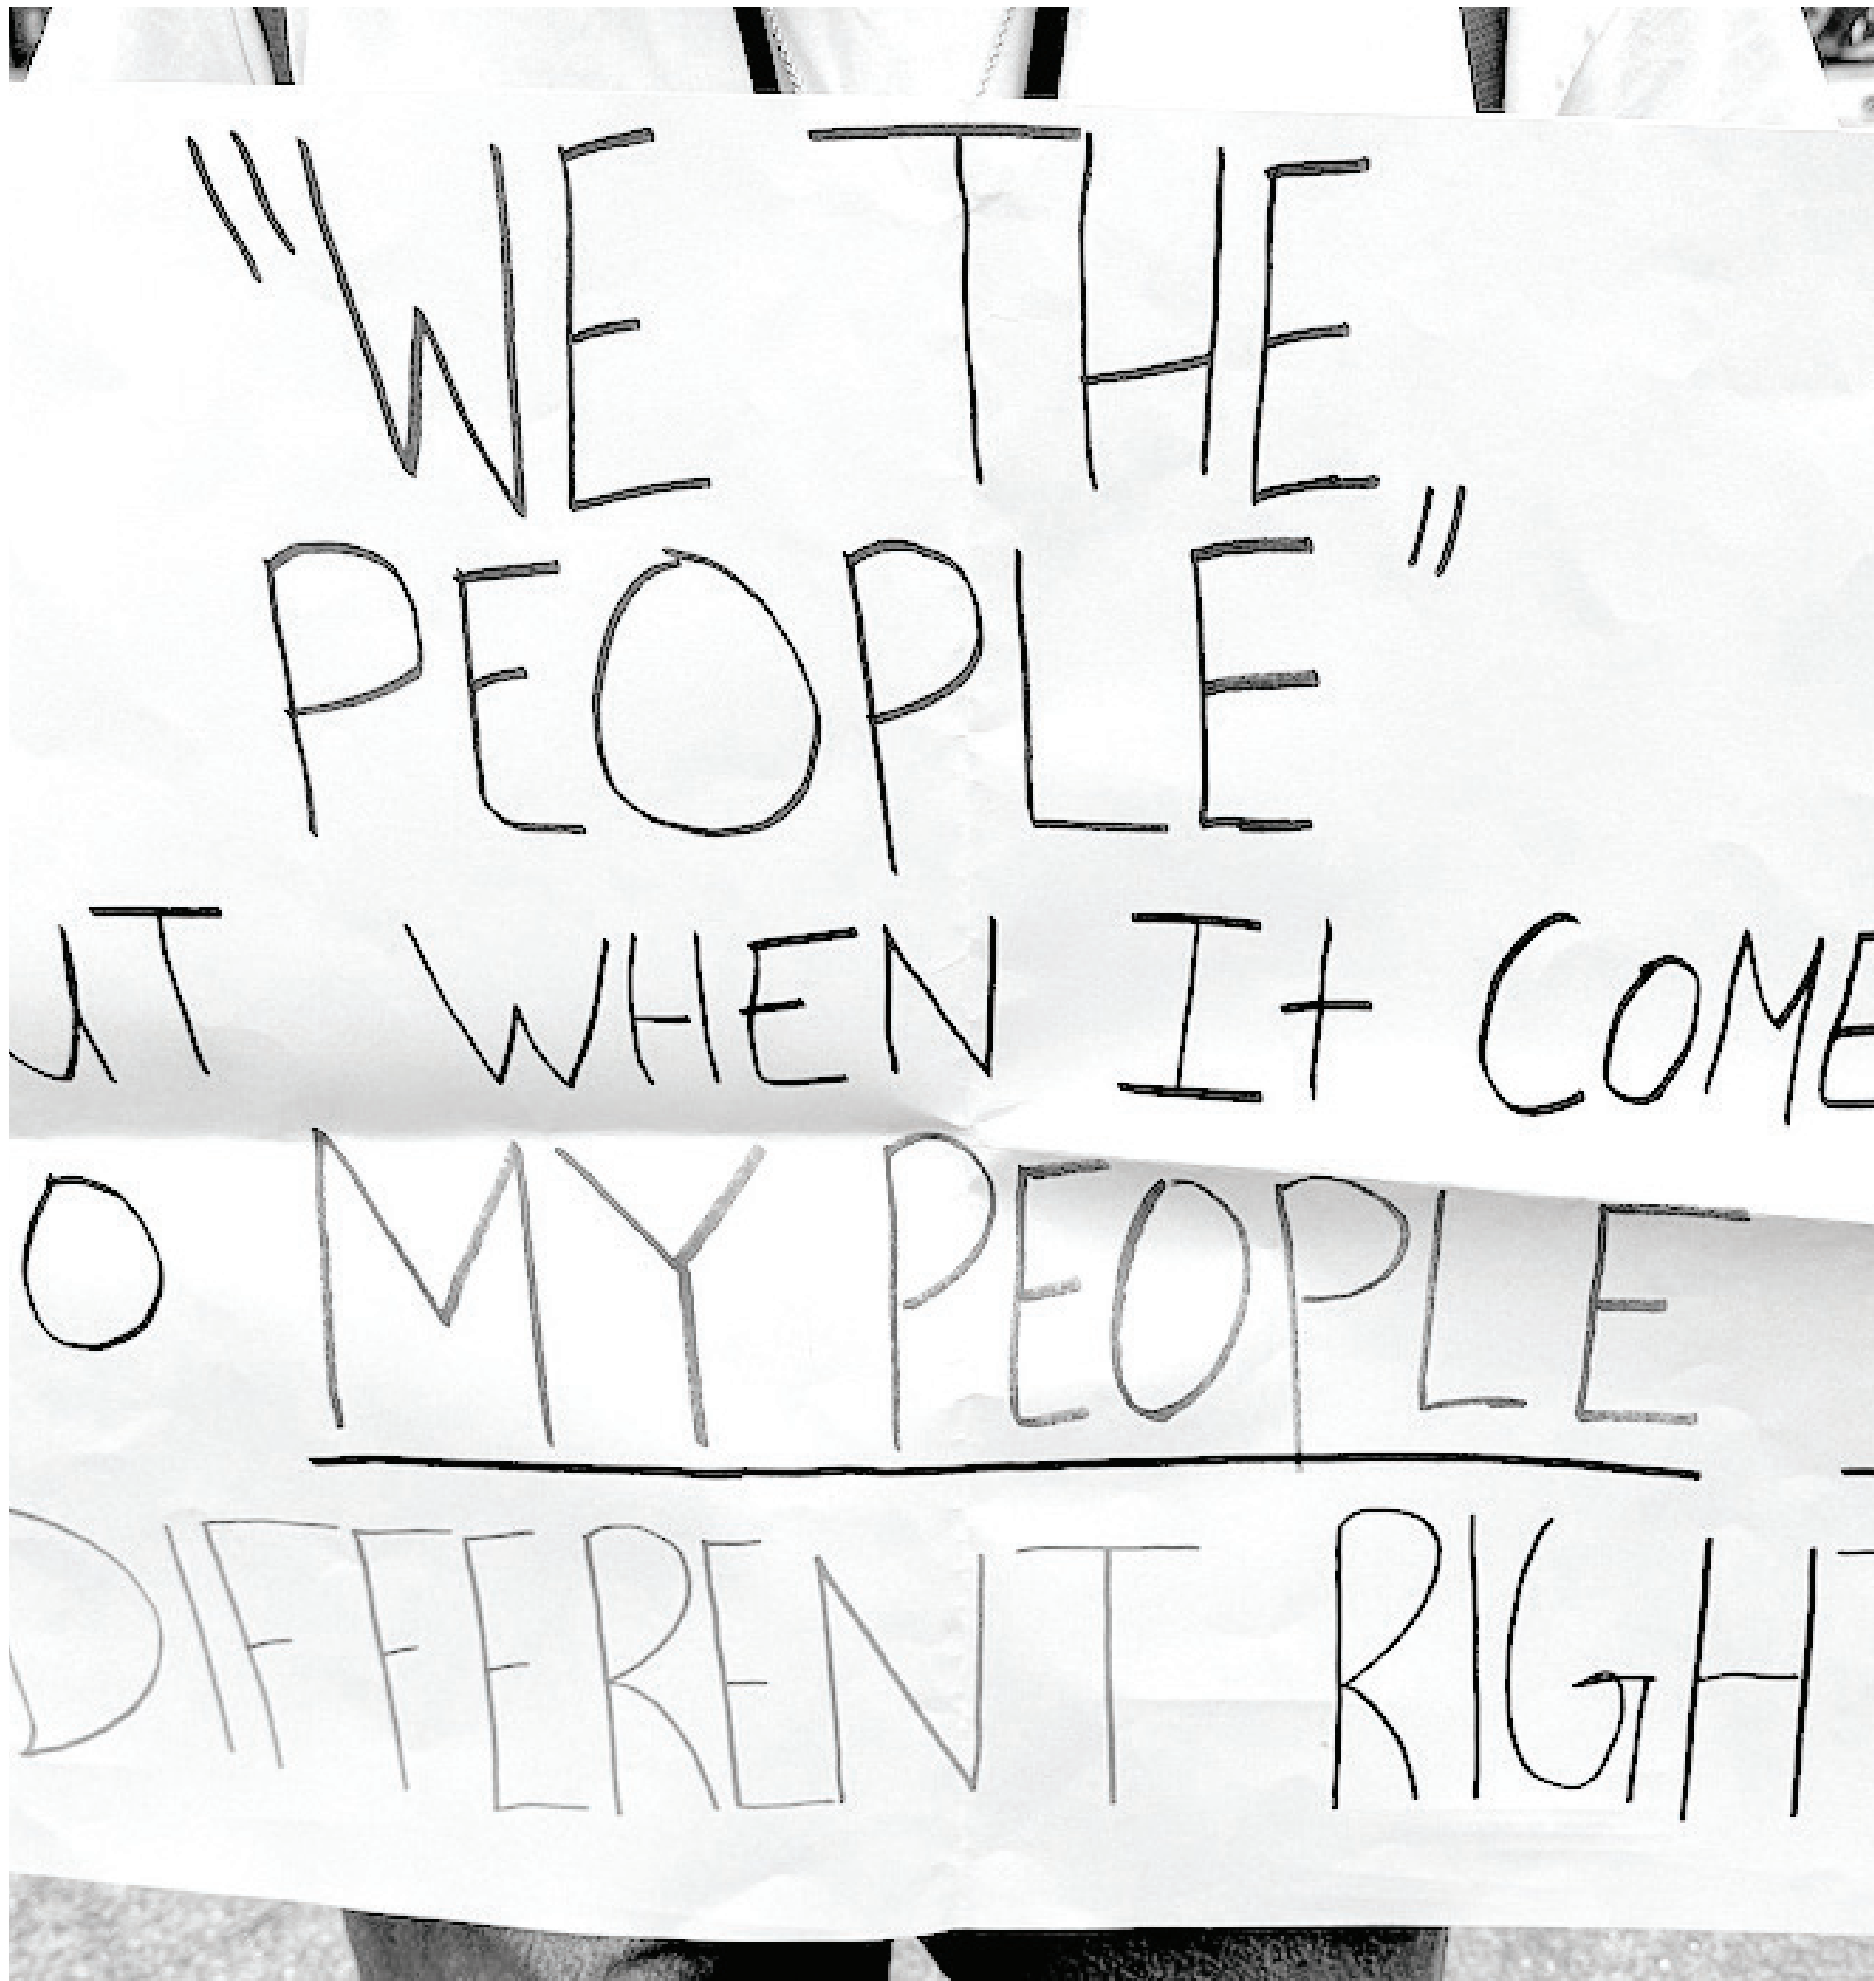 "WE THE
PEOPLE"
UT WHEN It COME
O MY PEOPLE
DIFFERENT RIGHT